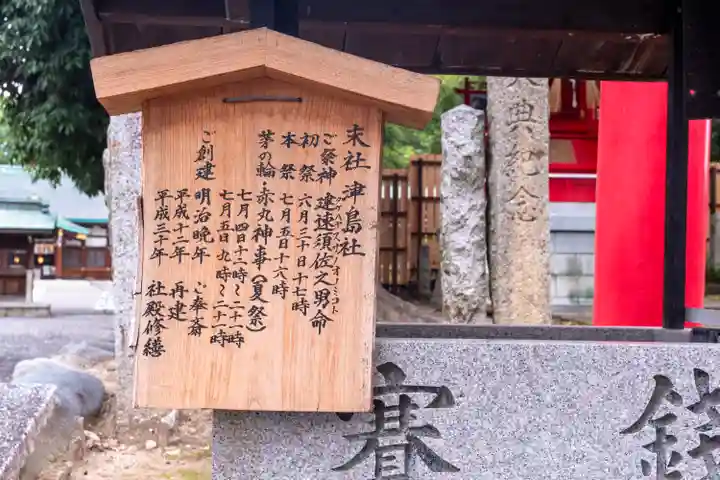 末社津島社
ご祭神 建速須佐之男命
タケハヤスサノオノミコト
初祭 六月三十日十七時
本祭 七月五日十六時
茅の輪・赤丸神事(夏祭)
七月四日十二時〜二十一時
七月五日九時〜二十一時
ご創建 明治晩年 ご奉斎
平成十二年 再建
平成三十年 社殿修繕
典紀念
賽
銭